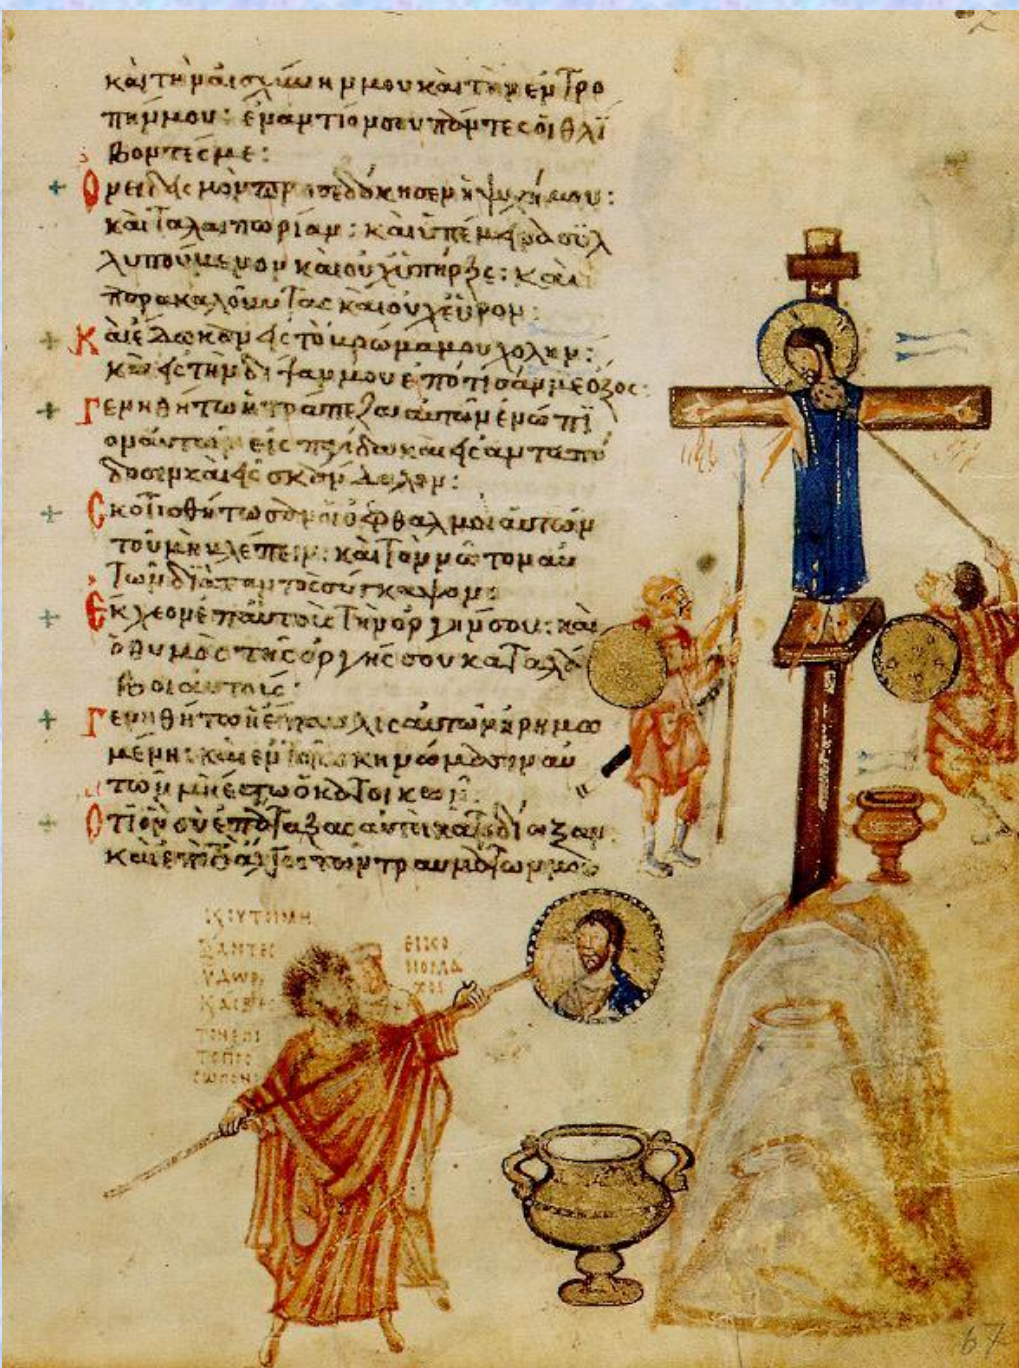 καὶ τὴν αἰσχύνην μου καὶ τὴν ἐντρο
πήν μου: ἐναντίον σου πάντες οἱ θλί
βοντές με:
Ονειδισμὸν προσεδόκησεν ἡ ψυχή μου:
καὶ ταλαιπωρίαν: καὶ ὑπέμεινα συλ
λυπούμενον καὶ οὐχ ὑπῆρξε: καὶ
παρακαλοῦντας καὶ οὐχ εὗρον:
Καὶ ἔδωκαν εἰς τὸ βρῶμά μου χολήν:
καὶ εἰς τὴν δίψαν μου ἐπότισάν με ὄξος:
Γενηθήτω ἡ τράπεζα αὐτῶν ἐνώπι
ον αὐτῶν εἰς παγίδα καὶ εἰς ἀνταπό
δοσιν καὶ εἰς σκάνδαλον:
Σκοτισθήτωσαν οἱ ὀφθαλμοὶ αὐτῶν
τοῦ μὴ βλέπειν: καὶ τὸν νῶτον αὐ
τῶν διὰ παντὸς σύγκαμψον:
Εκχεον ἐπ αὐτοὺς τὴν ὀργήν σου: καὶ
ὁ θυμὸς τῆς ὀργῆς σου καταλά
βοι αὐτούς:
Γενηθήτω ἡ ἔπαυλις αὐτῶν ἠρημω
μένη: καὶ ἐν τοῖς σκηνώμασιν αὐ
τῶν μὴ ἔστω ὁ κατοικῶν:
Οτι ὃν σὺ ἐπάταξας αὐτοὶ κατεδίωξαν
καὶ ἐπὶ τὸ ἄλγος τῶν τραυμάτων μου
ΞΑΝΤΕΣ
ΥΔΩΡ
ΕΙΚΟ
ΝΟΜΑ
ΧΟΙ
67